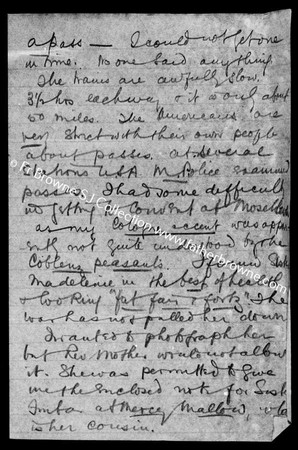 a pass — I could not get one
in time. No one said anything.
The trains are awfully slow.
3½ hrs each way & it is only about
50 miles. The Americans are
very strict with their own people
about passes. At several
stations U.S.A. M. Police examined
passes. I had some difficulty
in getting to Convent at Moselweis
as my Cologne accent was appar
ently not quite understood by the
Coblenz peasants. Sister
Madeleine in the best of health
& looking "fat fair & forty". The
war has not pulled her down
I wanted to photograph her
but Rev Mother would not allow
it. She was permitted to give
me the enclosed note for Sister
at Mercy Mallow, who
is her cousin.
© Fr Browne S.J. Collection